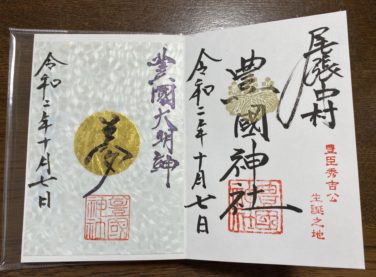 尾張中村
豊臣秀吉公
生誕之地
豊國神社
令和二年十月七日
豊國大明神
夢
令和二年十月七日
豊國
神社